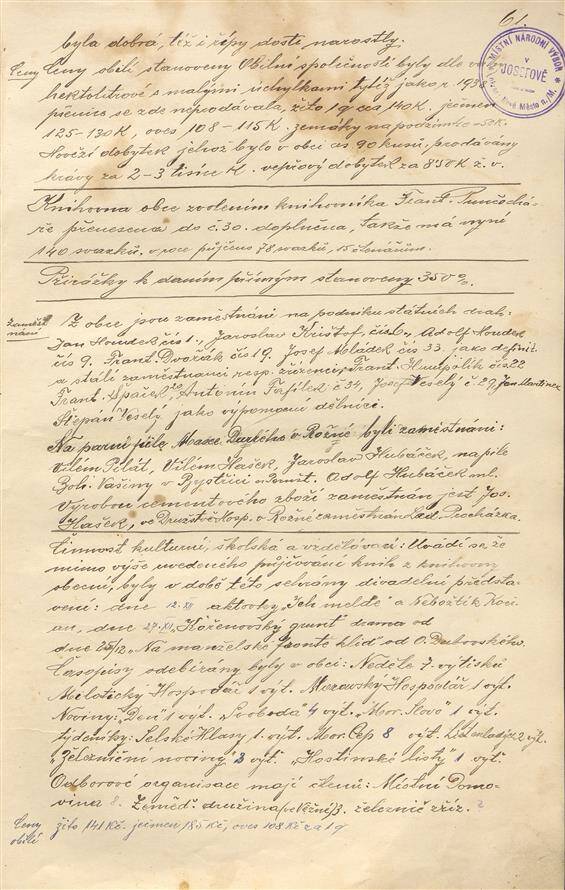 61.
MÍSTNÍ NÁRODNÍ VÝBOR
V
JOSEFOVĚ
Nové Město n./M.
byla dobrá, též i řípy dosti narostly.
Ceny Ceny obilí stanoveny Obilní společností byly dle váhy
hektolitrové s malými úchylkami tytéž jako r. 1938.
pšenice se zde neprodávala, žito 1 q as 140 K. ječmen
125-130 K, oves 108-115 K. zemáky na podzim
Hovězí dobytek jehož bylo v obci as 90 kusů. prodávány
krávy za 2-3 tisíce K. vepřový dobytek za 8'50 K ž. v.
Knihovna obce zvolením knihovníka Frant.
ře přenesena do č. 30. doplněna, takže má nyní
140 svazků. v roce půjčeno 78 svazků, 15 čtenářům.
Přirážky k daním přímým stanoveny 350%.
Zaměst
nání
Z obce jsou zaměstnáni na podniku státních drah:
Jan Houdek čís 1., Jaroslav Krištof, čís 6., Adolf Houdek
čís 9. Frant. Dvořák čís 19. Josef Mládek čís 33. jako definit.
a stálí zaměstnanci resp. zřízenci, Frant. Humpolík čís 22
Frant. Špaček, Antonín č 34, Josef Veselý č. 29, Jan Martinek
Štěpán Veselý jako výpomocní dělníci.
Na parní pile v Rožné byli zaměstnáni:
Vilém Pilát, Vilém Hašek, Jaroslav Hubáček, na pile
Boh. Vašiny v Bystřici n Pernšt. Adolf Hubáček ml.
Výrobou cementového zboží zaměstnán jest Jos.
Hašek, ve Družstvě Hosp. v Rožné zaměstnán Lad. Procházka.
Činnost kulturní, školská a vzdělávací: Uvádí se že
mimo výše uvedeného půjčování knih z knihovny
obecní, byly v době této sehrány divadelní představ
vení: dne 12. XI aktovky, "Ich melde" a Nebožtík Koci-
an, dne 27. XI, "Kořenovský grunt" drama od
dne 25/12. "Na manželské frontě klid" od O. Dubrovského.
Časopisy odebírány byly v obci: Neděle 7. výtisků
Milotický Hospodář 1 výt. Moravský Hospodář 1 výt.
Noviny: "Den" 1 výt. "Svoboda" 4 výt. "Mor. Slovo" 1 výt.
týdeníky: Selské Hlasy 1. výt. Mor. Cep 8 výt. 2 výt.
"Železniční noviny" 3 výt. "Hostinské listy" 1 výt.
Odborové organisace mají členů: Místní Domo-
vina 8. Zeměd. družina 3. železnič zříz. 2
Ceny
obilí
žito 141 Kč. ječmen 185 Kč, oves 108 Kč za 1 q